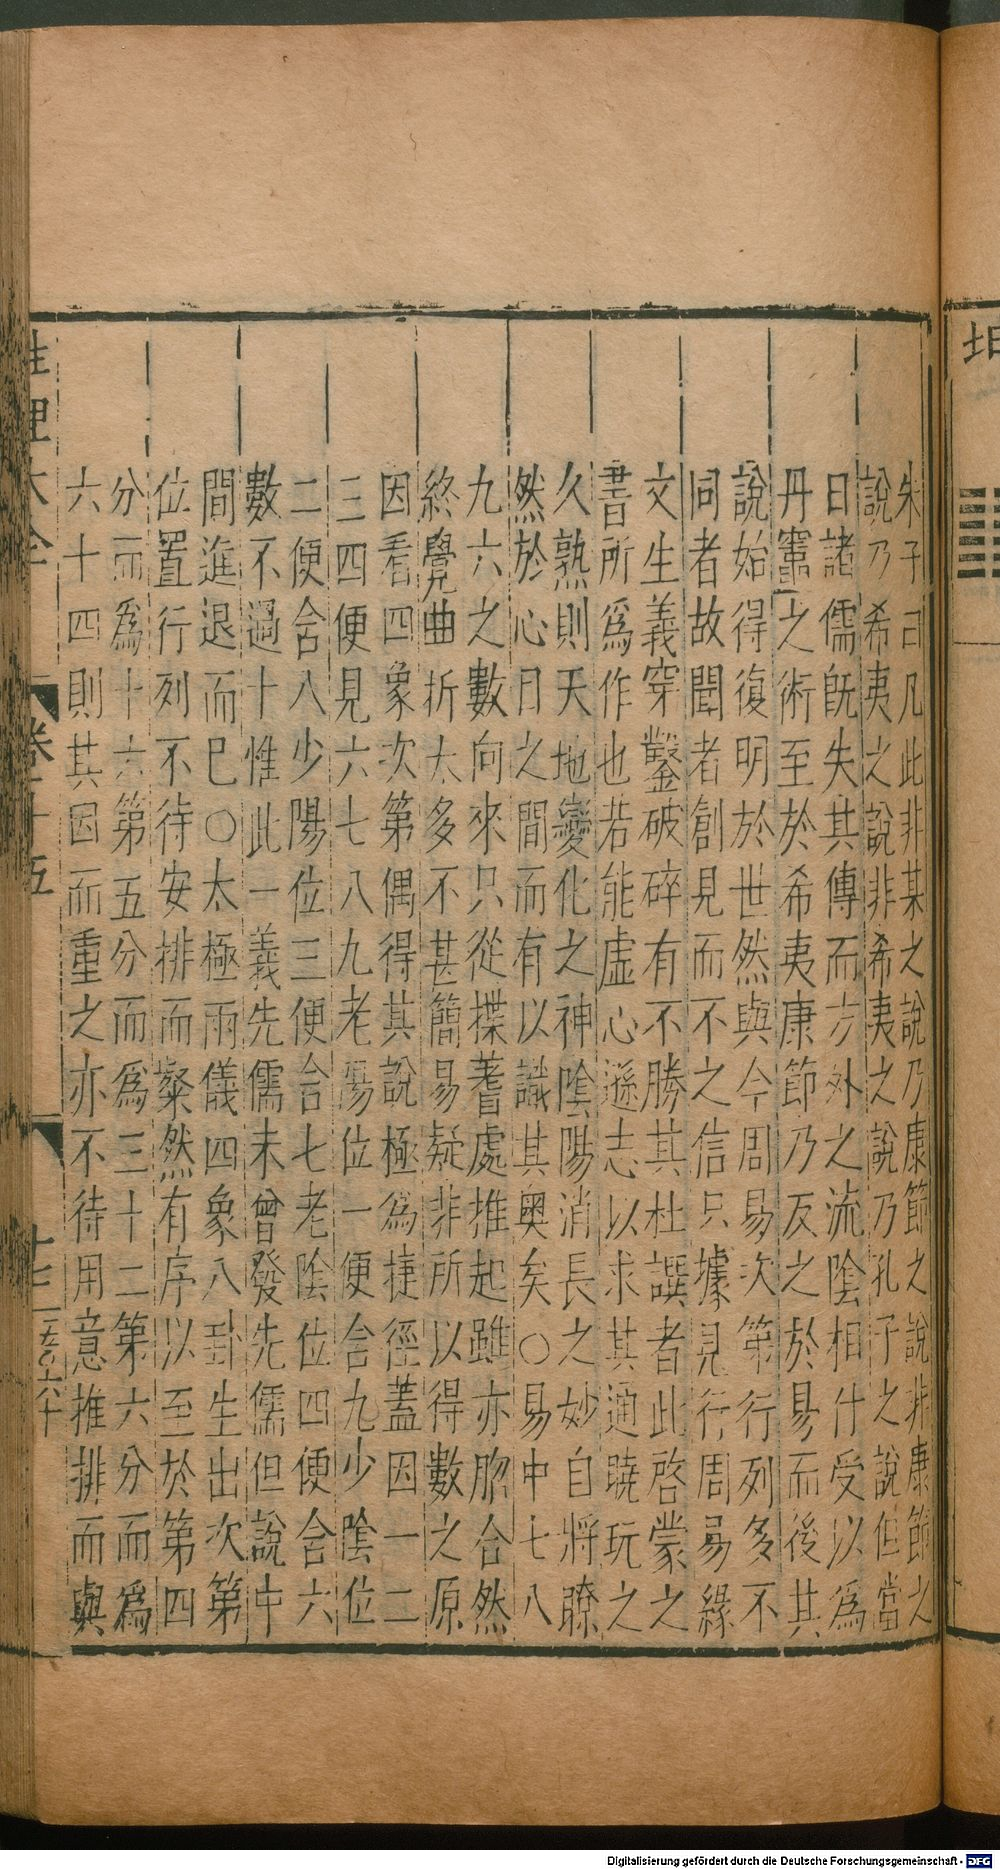 朱子曰凡此非某之說乃康節之說非康節之
說乃希夷之說非希夷之說乃孔子之說但當
日諸儒旣失其傳而方外之流陰相付受以為
丹竈之術至於希夷康節乃反之於易而後其
說始得復明於世然與今周易次第行列多不
同者故聞者創見而不之信只據見行周易緣
文生義穿鑿破碎有不勝其杜譔者此啓蒙之
書所爲作也若能虛心遜志以求其通曉玩之
久熟則天地變化之神陰陽消長之妙自將瞭
然於心目之間而有以識其奧矣○易中七八
九六之數向來只從揲蓍處推起雖亦脗合然
終覺曲折太多不甚簡易疑非所以得數之原
因看四象次第偶得其說極為捷徑蓋因一二
三四便見六七八九老陽位一便含九少陰位
二便含八少陽位三便含七老陰位四便含六
數不過十惟此一義先儒未曾發先儒但說中
間進退而已○太極兩儀四象八卦生出次第
位置行列不待安排而粲然有序以至於第四
分而爲十六第五分而爲三十二第六分而爲
六十四則其因而重之亦不待用意推排而與
性理大全 卷十五
坤
Digitalisierung gefördert durch die Deutsche Forschungsgemeinschaft - DFG